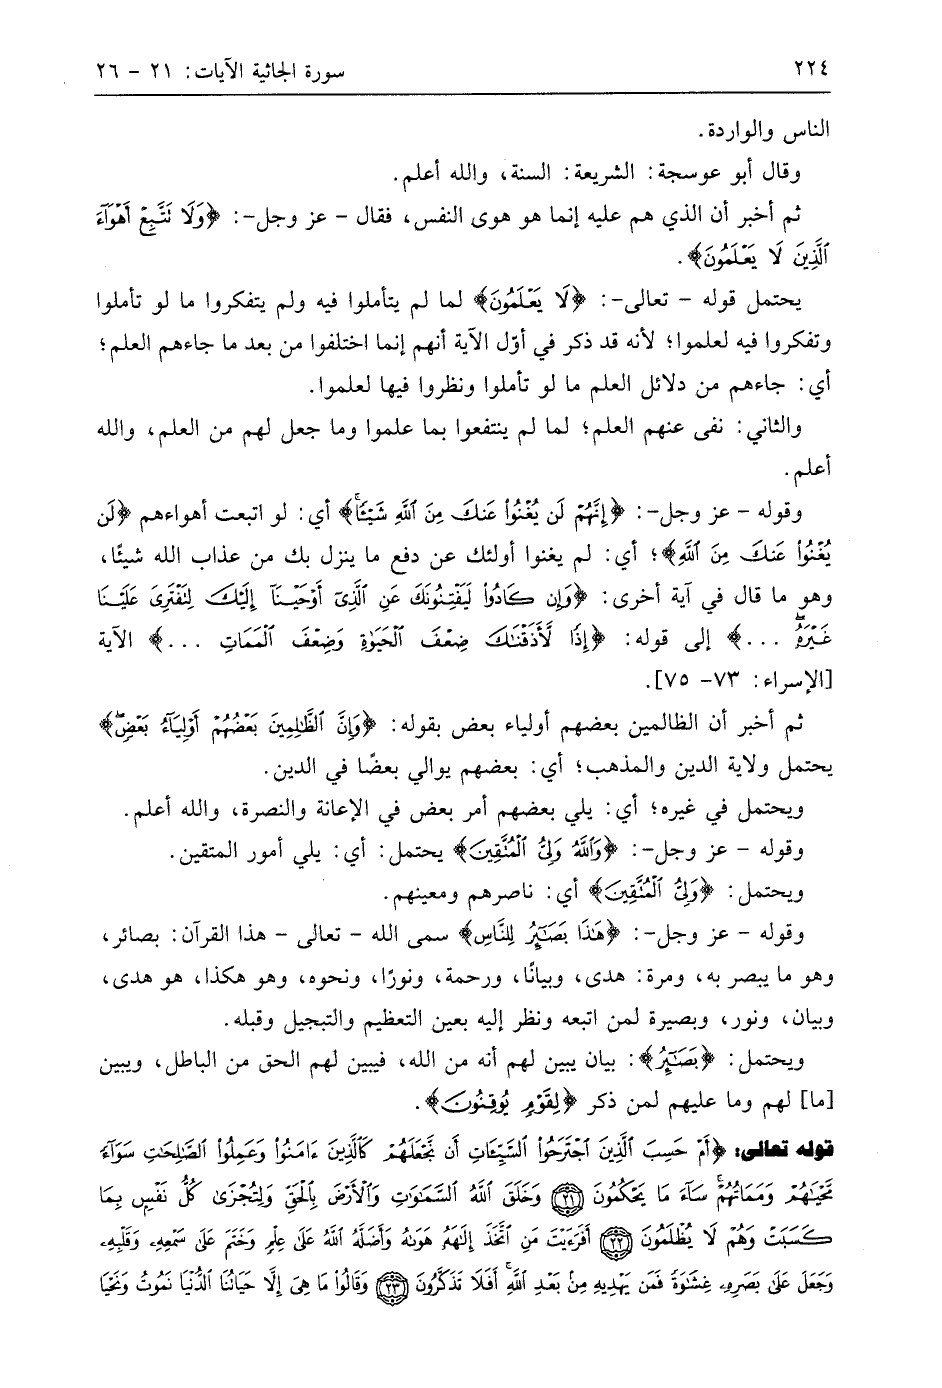 ٢٢٤ سورة الجاثية الآيات: ٢١ - ٢٦
الناس والواردة.
وقال أبو عوسجة: الشريعة: السنة، والله أعلم.
ثم أخبر أن الذي هم عليه إنما هو هوى النفس، فقال - عز وجل-: ﴿وَلَا نَتَّبِعْ أَهْوَآءَ
ٱلَّذِينَ لَا يَعْلَمُونَ﴾.
يحتمل قوله - تعالى-: ﴿لَا يَعْلَمُونَ﴾ لما لم يتأملوا فيه ولم يتفكروا ما لو تأملوا
وتفكروا فيه لعلموا؛ لأنه قد ذكر في أوّل الآية أنهم إنما اختلفوا من بعد ما جاءهم العلم؛
أي: جاءهم من دلائل العلم ما لو تأملوا ونظروا فيها لعلموا.
والثاني: نفى عنهم العلم؛ لما لم ينتفعوا بما علموا وما جعل لهم من العلم، والله
أعلم.
وقوله - عز وجل-: ﴿إِنَّهُمْ لَن يُغْنُوا۟ عَنكَ مِنَ ٱللَّهِ شَيْـًٔا﴾ أي: لو اتبعت أهواءهم ﴿لَن
يُغْنُوا۟ عَنكَ مِنَ ٱللَّهِ﴾؛ أي: لم يغنوا أولئك عن دفع ما ينزل بك من عذاب الله شيئًا،
وهو ما قال في آية أخرى: ﴿وَإِن كَادُوا۟ لَيَفْتِنُونَكَ عَنِ ٱلَّذِىٓ أَوْحَيْنَآ إِلَيْكَ لِتَفْتَرِىَ عَلَيْنَا
غَيْرَهُۥ ...﴾ إلى قوله: ﴿إِذًا لَّأَذَقْنَـٰكَ ضِعْفَ ٱلْحَيَوٰةِ وَضِعْفَ ٱلْمَمَاتِ ...﴾ الآية
[الإسراء: ٧٣- ٧٥].
ثم أخبر أن الظالمين بعضهم أولياء بعض بقوله: ﴿وَإِنَّ ٱلظَّـٰلِمِينَ بَعْضُهُمْ أَوْلِيَآءُ بَعْضٍ﴾
يحتمل ولاية الدين والمذهب؛ أي: بعضهم يوالي بعضًا في الدين.
ويحتمل في غيره؛ أي: يلي بعضهم أمر بعض في الإعانة والنصرة، والله أعلم.
وقوله - عز وجل-: ﴿وَٱللَّهُ وَلِىُّ ٱلْمُتَّقِينَ﴾ يحتمل: أي: يلي أمور المتقين.
ويحتمل: ﴿وَلِىُّ ٱلْمُتَّقِينَ﴾ أي: ناصرهم ومعينهم.
وقوله - عز وجل-: ﴿هَـٰذَا بَصَـٰٓئِرُ لِلنَّاسِ﴾ سمى الله - تعالى - هذا القرآن: بصائر،
وهو ما يبصر به، ومرة: هدى، وبيانًا، ورحمة، ونورًا، ونحوه، وهو هكذا، هو هدى،
وبيان، ونور، وبصيرة لمن اتبعه ونظر إليه بعين التعظيم والتبجيل وقبله.
ويحتمل: ﴿بَصَـٰٓئِرُ﴾: بيان يبين لهم أنه من الله، فيبين لهم الحق من الباطل، ويبين
[ما] لهم وما عليهم لمن ذكر ﴿لِقَوْمٍ يُوقِنُونَ﴾.
قوله تعالى: ﴿أَمْ حَسِبَ ٱلَّذِينَ ٱجْتَرَحُوا۟ ٱلسَّيِّـَٔاتِ أَن نَّجْعَلَهُمْ كَٱلَّذِينَ ءَامَنُوا۟ وَعَمِلُوا۟ ٱلصَّـٰلِحَـٰتِ سَوَآءً
مَّحْيَاهُمْ وَمَمَاتُهُمْ سَآءَ مَا يَحْكُمُونَ ﴿٢١﴾ وَخَلَقَ ٱللَّهُ ٱلسَّمَـٰوَٰتِ وَٱلْأَرْضَ بِٱلْحَقِّ وَلِتُجْزَىٰ كُلُّ نَفْسٍۭ بِمَا
كَسَبَتْ وَهُمْ لَا يُظْلَمُونَ ﴿٢٢﴾ أَفَرَءَيْتَ مَنِ ٱتَّخَذَ إِلَـٰهَهُۥ هَوَىٰهُ وَأَضَلَّهُ ٱللَّهُ عَلَىٰ عِلْمٍ وَخَتَمَ عَلَىٰ سَمْعِهِۦ وَقَلْبِهِۦ
وَجَعَلَ عَلَىٰ بَصَرِهِۦ غِشَـٰوَةً فَمَن يَهْدِيهِ مِنۢ بَعْدِ ٱللَّهِ أَفَلَا تَذَكَّرُونَ ﴿٢٣﴾ وَقَالُوا۟ مَا هِىَ إِلَّا حَيَاتُنَا ٱلدُّنْيَا نَمُوتُ وَنَحْيَا